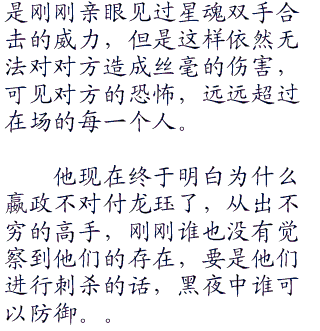 是刚刚亲眼见过星魂双手合
击的威力，但是这样依然无
法对对方造成丝毫的伤害，
可见对方的恐怖，远远超过
在场的每一个人。
他现在终于明白为什么
嬴政不对付龙珏了，从出不
穷的高手，刚刚谁也没有觉
察到他们的存在，要是他们
进行刺杀的话，黑夜中谁可
以防御。。